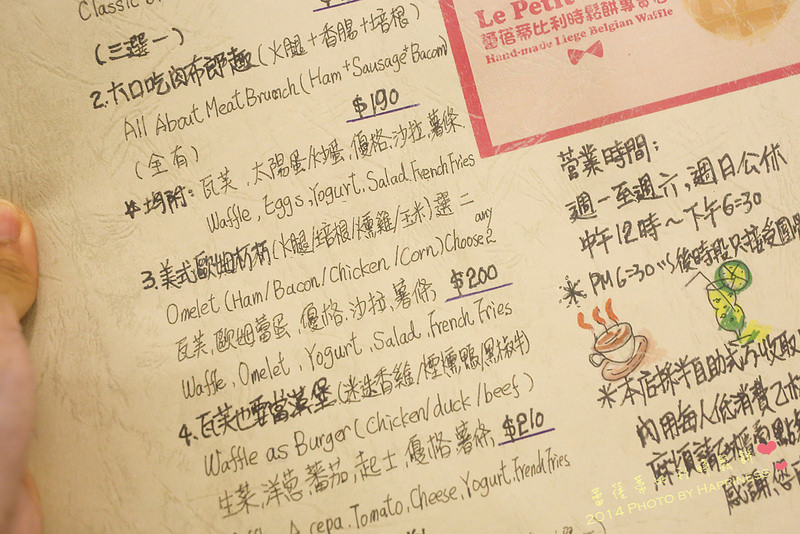 Classic
(三選一)
2. 大口吃肉布郎趣(火腿+香腸+培根)
All About Meat Brunch (Ham+Sausage+Bacon)
$190
(全有)
*均附: 瓦芙, 太陽蛋/炒蛋, 優格, 沙拉, 薯條
Waffle, Eggs, Yogurt, Salad, French Fries
3. 美式歐姆杯杯(火腿/培根/燻雞/玉米)選二
Omelet (Ham/Bacon/Chicken/Corn) Choose any 2
$200
瓦芙, 歐姆蕾蛋, 優格, 沙拉, 薯條
Waffle, Omelet, Yogurt, Salad, French Fries
4. 瓦芙也要當漢堡(迷迭香雞/煙燻鴨/黑椒牛)
Waffle as Burger (Chicken/duck/beef)
$210
生菜, 洋蔥, 蕃茄, 起士, 優格, 薯條
Tomato, Cheese, Yogurt, French Fries
Le Petit
蕾蓓蒂比利時鬆餅專賣店
Hand-made Liege Belgian Waffle
營業時間:
週一至週六, 週日公休
中午12時~下午6=30
* PM6=30以後時段只接受團
*本店採半自助式乃收取
內用每人低消費乙杯
感謝您
2014 PHOTO BY HAPPINESS